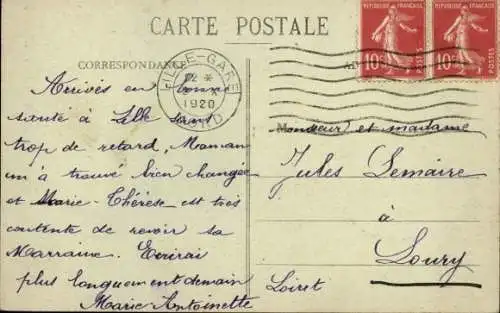 CARTE POSTALE
CORRESPONDANCE
LILLE-GARE
12 *
1920
NORD
RÉPUBLIQUE FRANÇAISE
10c
POSTES
RÉPUBLIQUE FRANÇAISE
10c
POSTES
Arrivés en bonne
santé à Lille sans
trop de retard, Maman
m'a trouvé bien changée
et Marie-Thérèse est très
contente de revoir sa
Marraine. Ecrirai
plus longuement demain
Marie Antoinette
Monsieur et madame
Jules Lemaire
à
Loury
Loiret